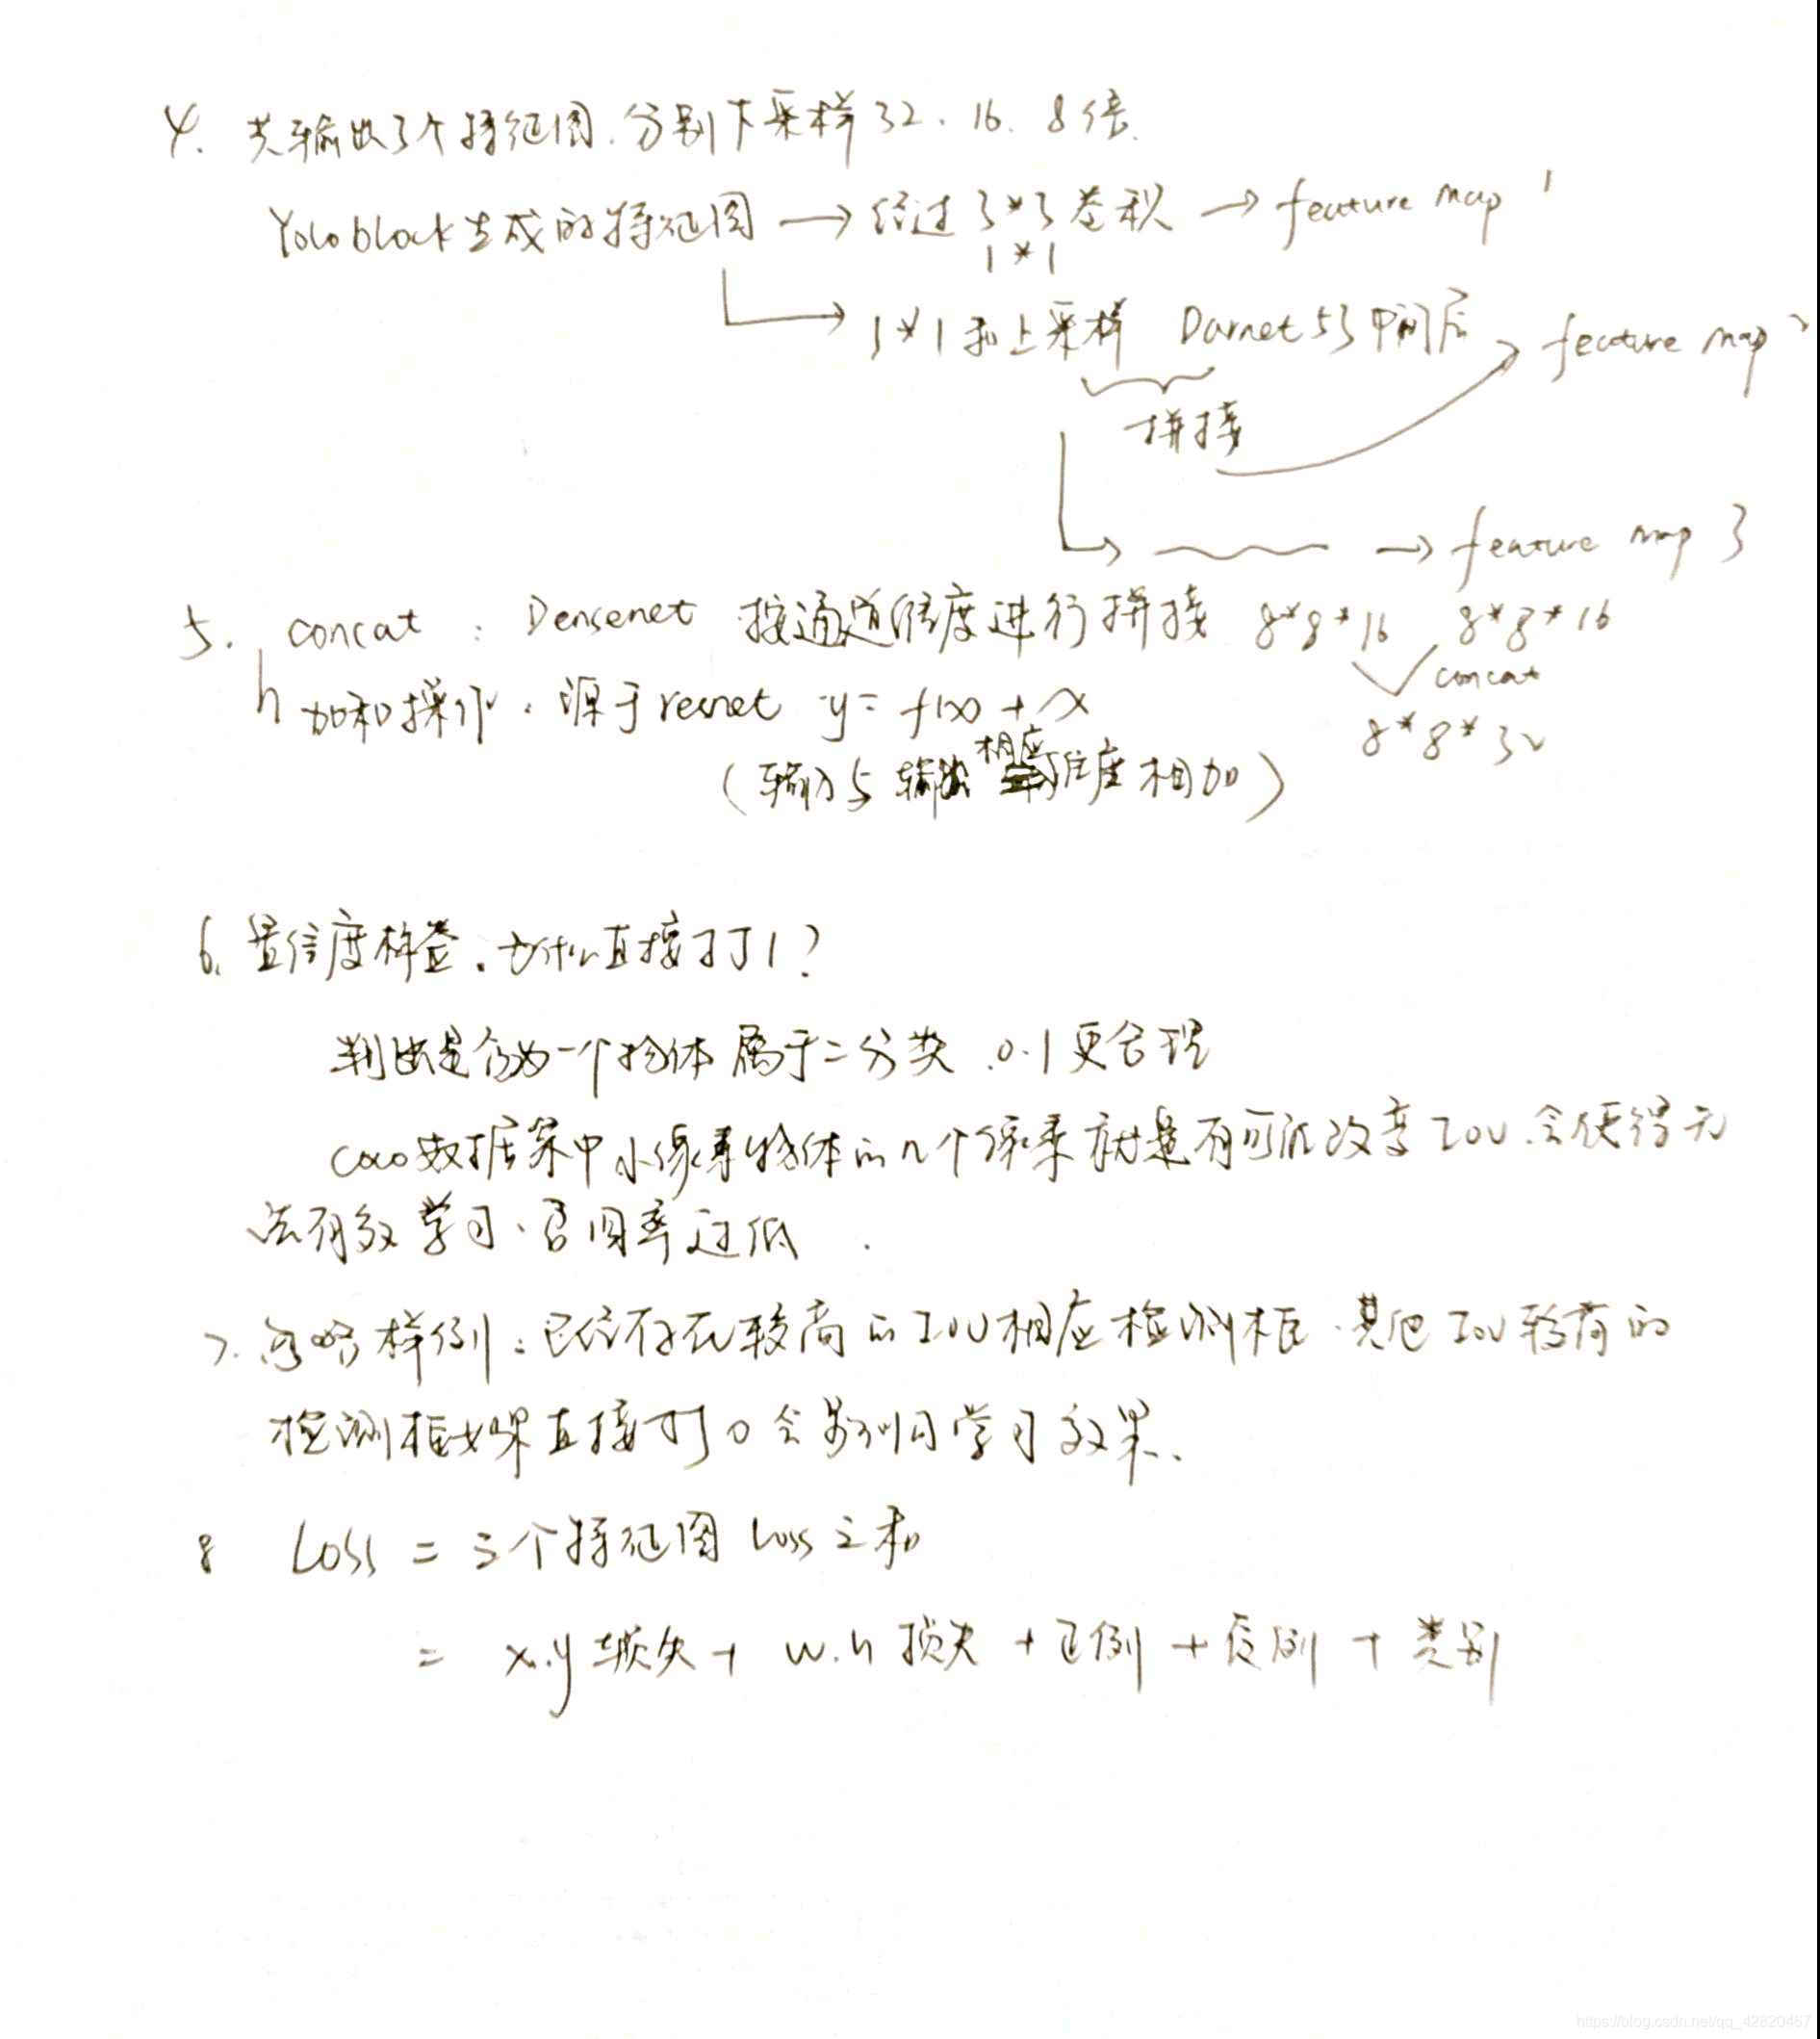 4. 共输出3个特征图.分别下采样32. 16. 8倍.
Yolo block生成的特征图 → 经过3*3卷积 → feature map 1
1*1
1*1和上采样 Darnet53中间层 feature map 2
拼接
→ feature map 3
5. concat : Densenet 按通道维度进行拼接 8*8*16 8*8*16
concat
加和操作. 源于resnet y= f(x) + x
8*8*32
(输入与输出相应维度相加)
6. 置信度标签.为什么直接打1?
判断是否为一个物体属于二分类.0.1更合理
coco数据集中小像素物体的几个像素就是有可能改变IOU.会使得无
法有效学习.召回率过低.
7. 忽略样例:已经存在较高的IOU相应检测框.其他IOU较高的
检测框如果直接打0会影响学习效果.
8 Loss = 三个特征图loss之和
= x.y损失+ w.h损失 + 正例 + 反例 + 类别
https://blog.csdn.net/qq_42820457